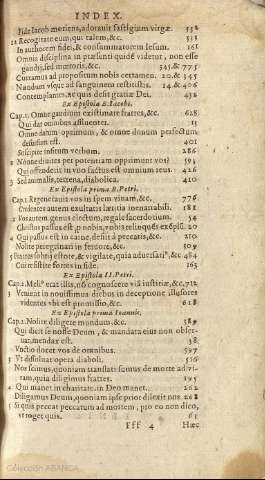 INDEX.
Fide Iacob moriens, adorauit fastigium virgæ. 558
12 Recogitate eum, qui talem, &c. 331
In authorem fidei, & consummatorem Iesum. 161
Omnis disciplina in præsenti quidẽ videtur, non esse
gaudij, sed mœroris, &c. 545. & 775
Curramus ad propositum nobis certamen. 20. & 345
Nondum vsque ad sanguinem restitistis. 14. & 406
Contemplantes, ne quis desit gratiæ Dei. 432
Ex Epistola B. Iacobi.
Cap. 1. Omne gaudium existimate fratres, &c. 628
Qui dat omnibus affluenter. 15
Omne datum optimum, & omne donum perfectum
desursum est. 401
Suscipite insitum verbum. 286
2 Nonne diuites per potentiam opprimunt vos? 593
Qui offenderit in vno factus est omnium reus. 426
3 Sed animalis, terrena, diabolica. 410
Ex Epistola prima B. Petri.
Cap. 1. Regenerauit vos in spem viuam, &c. 776
Credentes autem exultatis lætitia inenarrabili. 181
2 Vos autem genus electum, regale sacerdotium. 54
Christus passus est p nobis, vobis relinquẽs exẽplũ. 20
4 Qui passus est in carne, desiit à peccatis, &c. 210
Nolite peregrinari in feruore, &c. 509
5 Fratres sobrij estote, & vigilate, quia aduersari⁹, &c 484
Cui resistite fortes in fide. 163
Ex Epistola II. Petri.
Cap. 2. Meli⁹ erat illis, nõ cognoscere viã iustitiæ, &c, 712
3 Venient in nouissimis diebus in deceptione illusores
vbi est promissio, &c. 628
Ex Epistola prima Ioannis.
Cap. 2. Nolite diligere mundum &c. 589
Qui dicit se nosse Deum, & mandata eius non obser-
uat, mendax est. 38
Vnctio docet vos de omnibus. 597
3 Vt dissoluat opera diaboli. 516
Nos scimus, quoniam translati sumus de morte ad vi-
tam, quia diligimus fratres. 195
4 Qui manet in charitate, in Deo manet. 262
Diligamus Deum, quoniam ipse prior dilexit nos 268
5 Si quis peccat peccatum ad mortem, pro eo non dico,
vt roget quis. 61
Fff 4 Hæc
Colección ABANCA